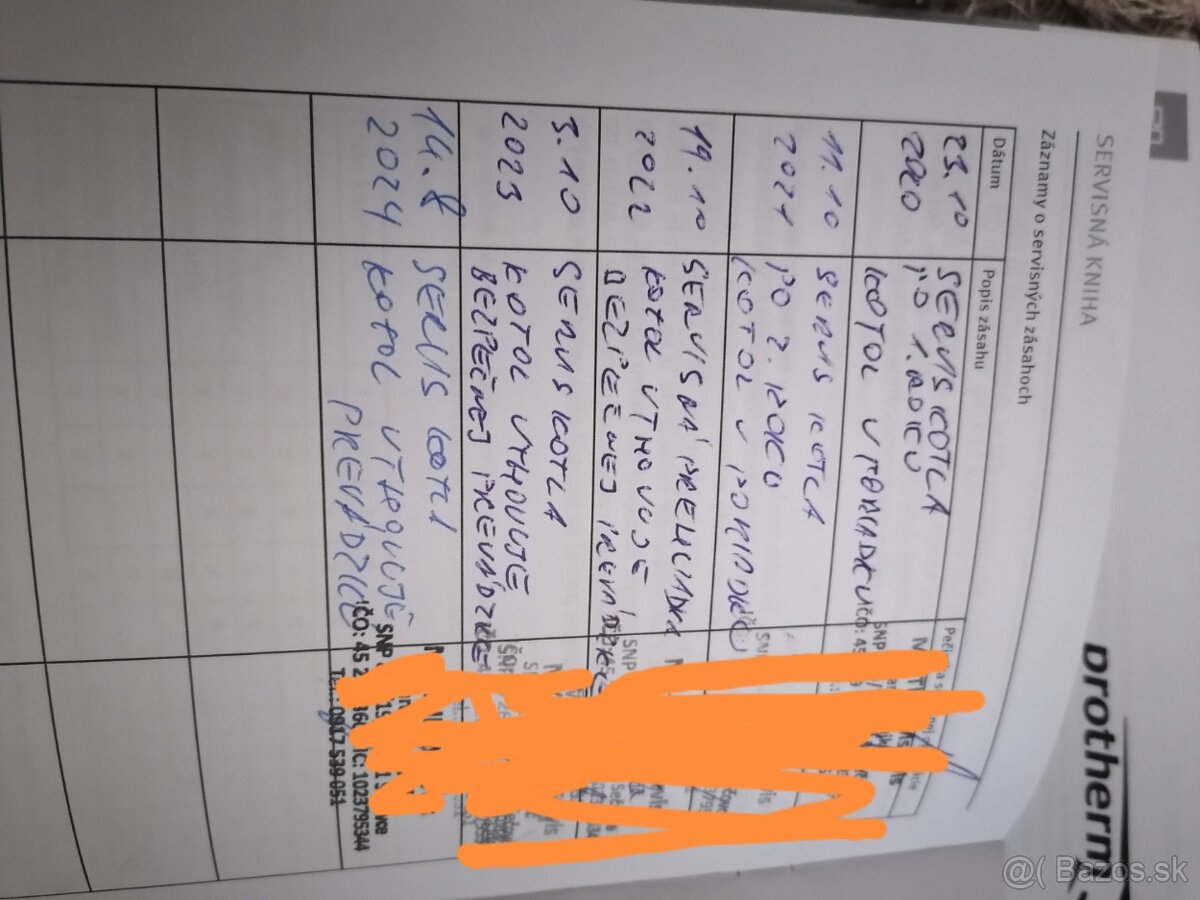 SERVISNÁ KNIHA
protherm
Záznamy o servisných zásahoch
Dátum
Popis zásahu
23.10
2020
SERVIS KOTLA
PO 1. ROKU
KOTOL V PORIADKU
11.10
2021
SERVIS KOTLA
PO 2. ROKU
KOTOL V PORIADKU
19.10
2022
SERVISNÁ PREHLIADKA
KOTOL VYHOVUJE
BEZPEČNEJ PREVÁDZKE
3.10
2023
SERVIS KOTLA
KOTOL VYHOVUJE
BEZPEČNEJ PREVÁDZKE
14.8
2024
SERVIS KOTLA
KOTOL VYHOVUJE
PREVÁDZKE
SNP
IČO: 45 2
IC: 1023795344
Tel.: 0917 539 051
@( Bazos.sk